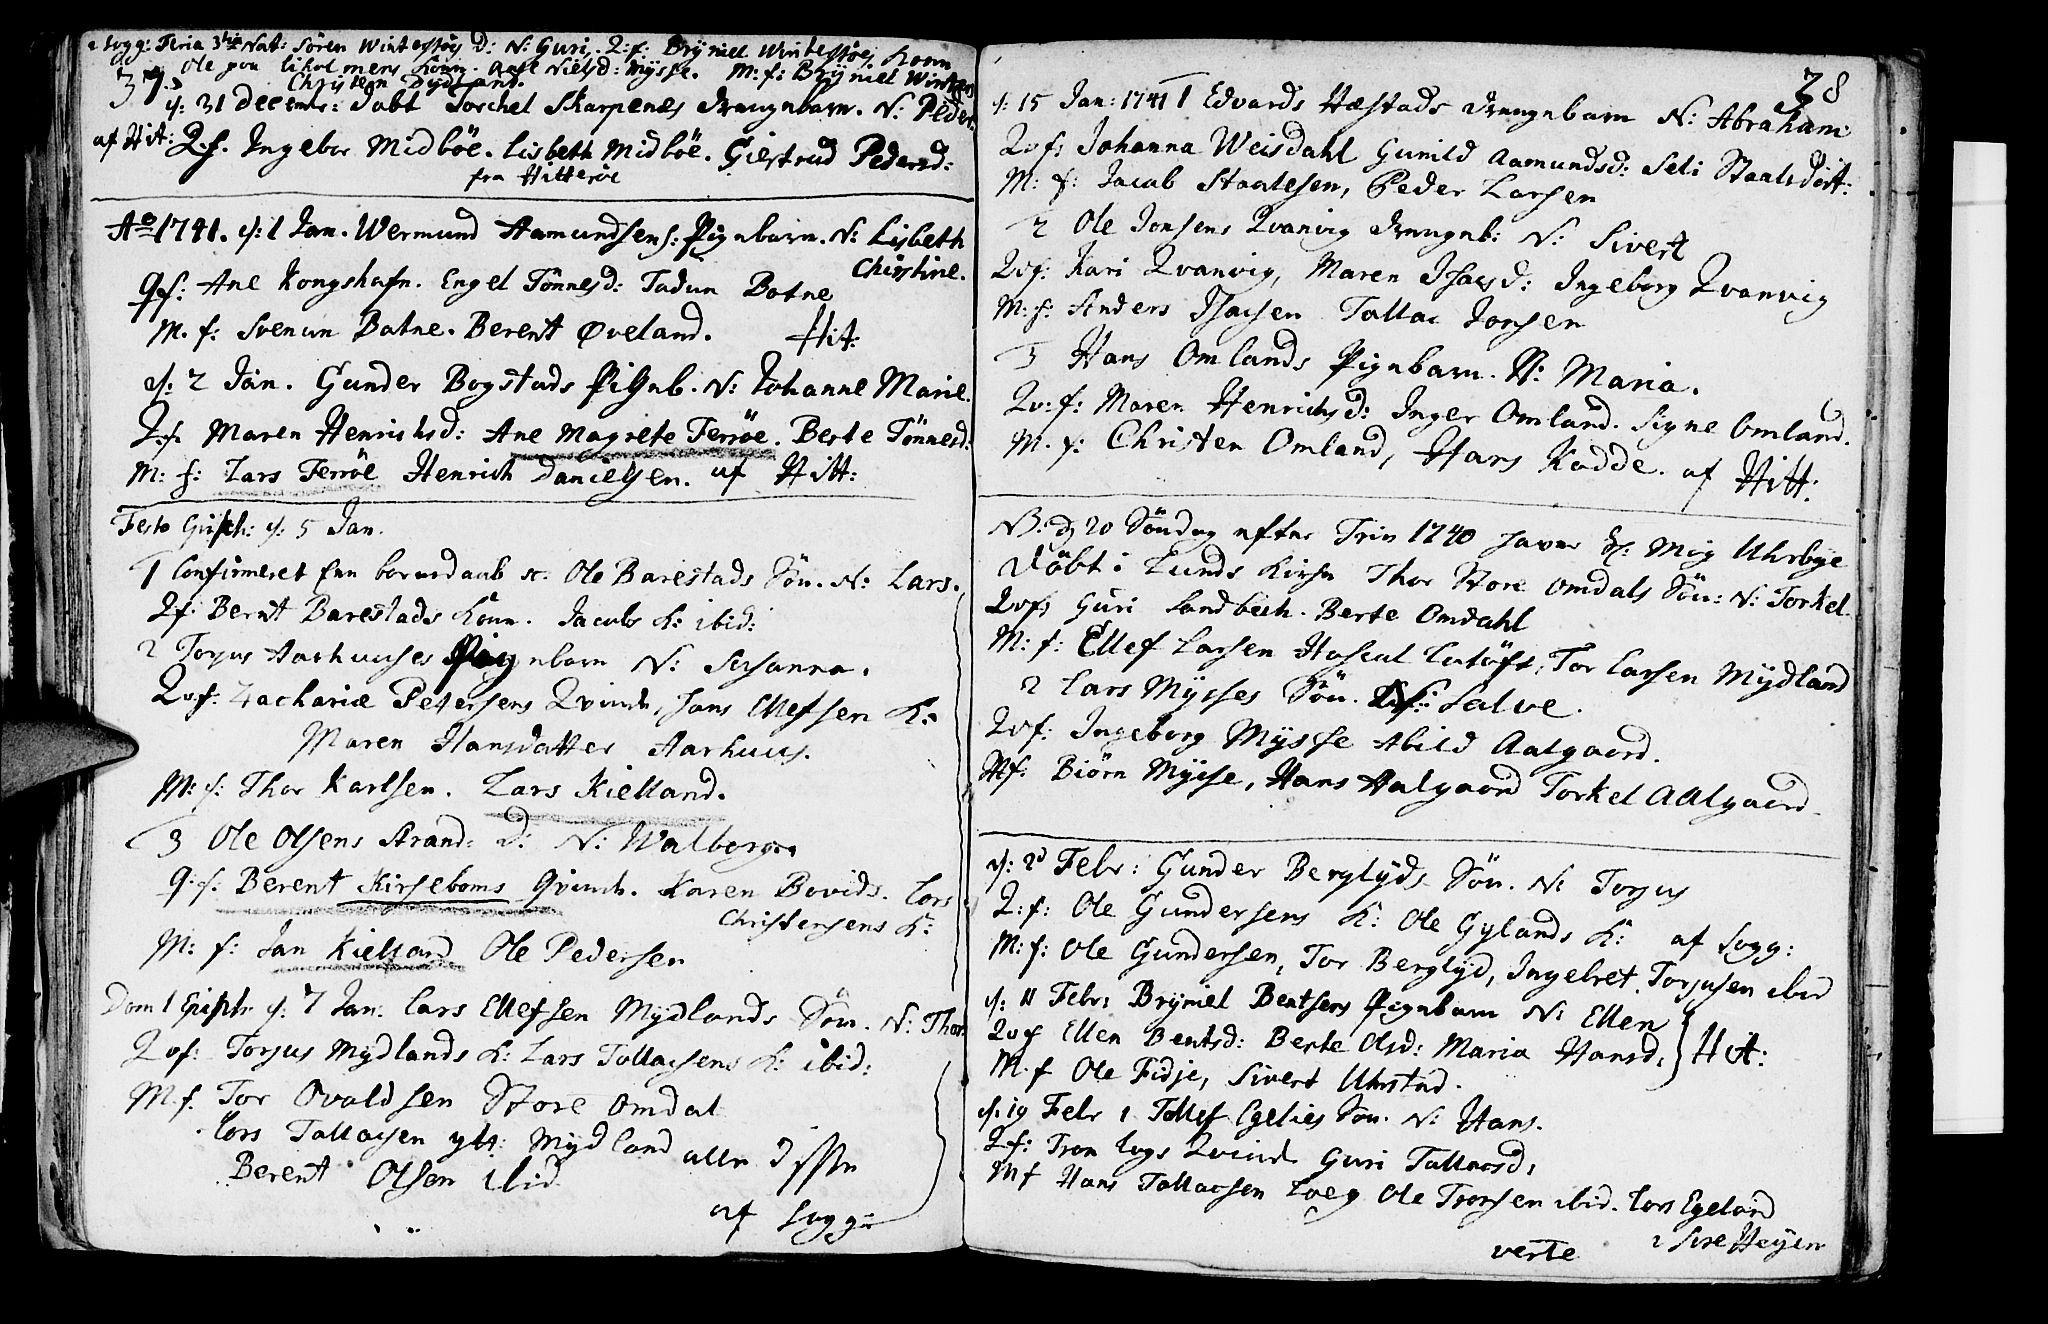 Sogg: Feria 3tia Nat: Sören Winterstöis d: N: Guri. Q: f: Bryniel Winterstöe, Konn
Ole paa Liholmens Konn. Aase Nielsd: Mysse. M: f: Bryniel Winters
Christen Dydland.
d: 31 Decembr: Döbt Torchel Skarpenæs drengebarn. N: Peder.
af Hit: Q.f. Ingebor Midböe. Lisbeth Midböe. Giertrud Pedersd:
fra Hitteröe
Ao 1741. d: 1 Jan. Wermund Aamundsens: Pigebarn. N: Lisbeth
Christine.
Qf: Ane Kongshafn. Engel Tönnesd: Botne
M. f: Svenun Botne. Berent Øveland. Hit:
d: 2 Jan. Gunder Bogstads PiGeb. N: Johanne Marie.
Q.f. Maren Henrichsd: Ane Magrete Ferröe. Berte Tönnesd:
M: f: Lars Ferröe Henrich Danielsen. af Hitt:
Festo Epiph: d: 5 Jan.
1 Confirmeret Ole Barestads Sön. N: Lars.
Qf. Bernt Barestads Konn. Jacobs K: ibid:
2 Torjus Aarhuuses Pigebarn N: Susanna.
Qvf: Zachariæ Petersens Qvinde, Jans Ellefsen K:
Maren Hansdatter Aarhuus.
M: f: Thor Karlsen. Lars Kielland.
3 Ole Olsens Strand: D: N: Walborg.
Q. f. Berent Kirseboms Qvinde. Karen Bovids. Lars
Christensens K:
M: f: Jan Kielland Ole Pedersen
Dom 1 Epiph d: 7 Jan. Lars Ellefsen Mydlands Sön. N: Thor
Qvf: Torjus Mydlands K: Lars Tollagsens K: ibid:
M.f. Tor Ovaldsen Store Omdal
Lars Tallagsen Mydland alle Disse
Berent Olsen ibid
af Sogge
28
d: 15 Jan: 1741 1 Edvards Hæstads drengebarn N: Abraham
Qvf: Johanna Weisdahl Gunild Aamundsd: Seli Staalsdat:
M: f: Jacob Staalesen, Peder Larsen
2 Ole Jonsens Qvanvig drengeb: N: Sivert
Qvf: Kari Qvanvig, Maren Isacsd: Ingeborg Qvanvig
M: f: Anders Isacsen Tallac Jonsen
3 Hans Omlands Pigebarn. N: Maria.
Qv: f: Maren Henrichsd: Inger Omland. Signe Omland.
M. f: Christen Omland, Hans Kadde. af Hitt:
NB. d 20 Söndag efter Trin 1740 Mig
döbt i Lunds Kirke Thor Store Omdals Sön: N: Torkel.
Qvf: Guri Sandbech. Berte Omdahl
M: f: Ellef Larsen, Tor Larsen Mydland
2 Lars Mysses Sön. N: Salve.
Qvf: Ingeborg Mysse Abild Aalgaard.
Mf: Biörn Mysse, Hans Aalgaard Torkel Aalgaard
d: 2d Febr: Gunder Berglyds Sön. N: Torjus
Q: f: Ole Gundersens K: Ole Gylands K: af Sogg:
M: f: Ole Gundersen, Tor Berglyd, Ingelret Torjusen ibid
d: 11 Febr: Bryniel Bentsens Pigebarn N: Ellen
Qvf Ellen Bentsd: Berte Olsd: Maria Hansd. Hit:
M. f Ole Fidje, Sivert Uhrstad.
d. 19 Febr 1 Tollef Egelies Sön. N: Hans.
Qf: Tron Qvinde Guri Tallacsd:
Mf Hans Tallagsen Ole Tronsen ibid. Lars Egeland
verte
2 Sire Heyen